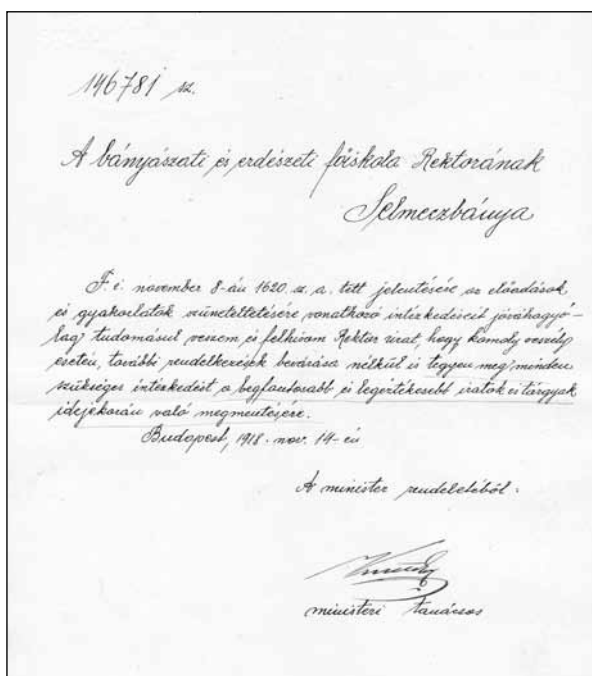 146781 sz.
A bányászati és erdészeti főiskola Rektorának
Selmeczbánya
F. é. november 8-án 1620. sz. a. tett jelentésére az előadások
és gyakorlatok szüneteltetésére vonatkozó intézkedéseit jóváhagyó-
lag tudomásul veszem és felhívom Rektor urat, hogy komoly veszély
esetén, további rendelkezések bevárása nélkül is tegyen meg minden
szükséges intézkedést a legfontosabb és legértékesebb iratok és tárgyak
idejekorán való megmentésére.
Budapest, 1918. nov. 14-én
A minister rendeletéből:
ministeri tanácsos